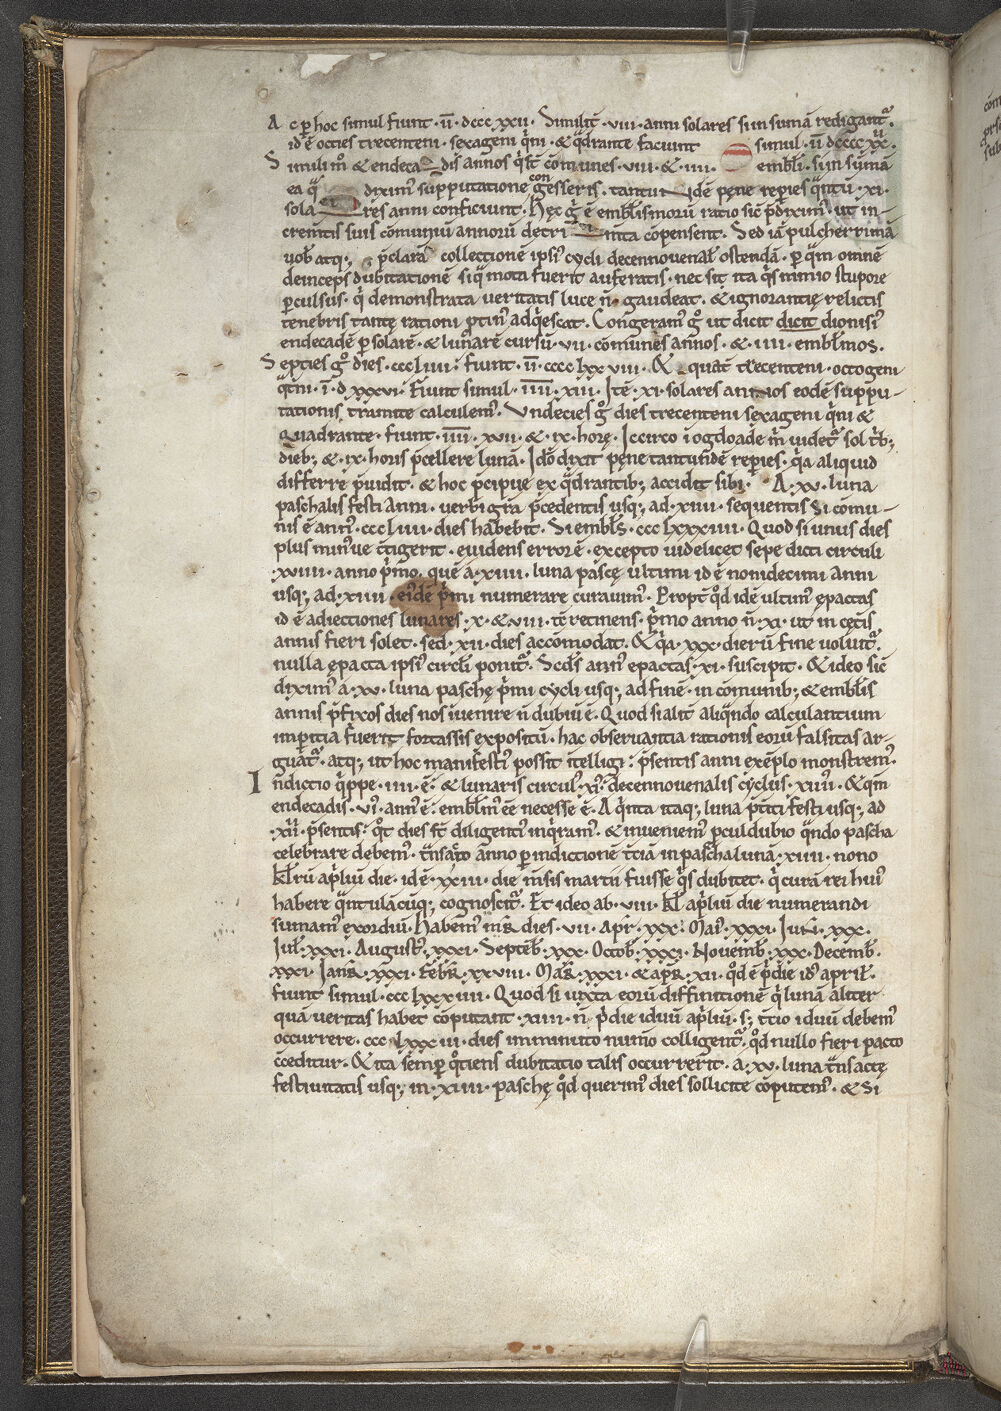 Ac ꝑ hoc simul fiunt · ii̅ · dcccc xxii · Similit̅ · viii · anni solares si in sumā redigant᷑ ·
id ē octies trecenteni · sexageni q̇ni · & q̇drante faciunt simul · ii̅ dcccc xx ·
Simili m̊ & endecadis annos q̇ st̅ cōmunes · viii · & · iii · embłi · si in sūmā
ea q̄ diximꝰ supputatione congesseris · tantundē pęne repies q̄ntū · xi ·
solares anni conficiunt · Hęc g̊ ē embłismorū ratio sic̄ p̄diximꝰ · ut in
crem̄tis suis cōmuniū annorū detrim̄ta cōpensent · Sed iā pulcherrimā
uob̄ atq; p̄clarā collectionē ipsiꝰ cycli decennouenał ostendā · ꝑ q̄m omnē
deinceps dubitationē siq̄ mota fuerit auferatis · nec sit ita q̇s nimio stupore
ꝑculsus · q̇ demonstrata ueritatis luce n̄ gaudeat · & ignorantię relictis
tenebris tantę rationi ꝓtinꝰ adq̇escat · Congeramꝰ g̊ ut dicit dicit dionisiꝰ
endecadē ꝑ solarē · & lunarē cursū · vii · cōmunes annos · & · iiii · embłmos ·
Septies g̊ dies · ccc liiii · fiunt · ii̅ · cccc lxx viii · Et quat̄ trecenteni · octogeni
q̄t̄ni · i̅ · d xxx vi · Fiunt simul · iiii̅ · xiiii · Itē · xi · solares annos eodē suppu-
tationis tramite calculemꝰ · Undecies g̊ dies trecenteni sexageni q̇ni &
quadrante · fiunt · iiii̅ · xvii · & · ix · horę · Iccirco i ogdoade m̄ uidet᷑ sol t̄b;
dieb; & · ix · horis p̄cellere lunā · Ido dixit pęne tantundē repies · q̇a aliquid
differre p̄uidit · & hoc p̄cipue ex q̇drantib; accidit sibi · A · xv · luna
paschalis festi anni · uerbi gra p̄cedentis usq; ad · xiiii · sequentis si cōmu-
nis ē annꝰ · ccc liiii · dies habebit · Si embłs · ccc lxxxiiii · Quod si unius dies
plus minꝰue c̄tigerit · euidens error ē · excepto uidelicet sepe dicti circuli
· xviiii · anno ṗmo · quē a · xiiii · luna pascę ultimi id ē nonidecimi anni
usq; ad · xiiii · eiꝰdē ṗmi numerare curauimꝰ · Propt̄ q̊d idē ultimꝰ epactas
id ē adiectiones lunares · x · & viii · t̄t̄ retinens · ṗmo anno n̄ · xi · ut in cęt̄is
annis fieri solet · sed · xii · dies accōmodat · & q̇a · xxx · dierū fine uoluit᷑ ·
nulla epacta ipsiꝰ circłi ponit᷑ · Scds annꝰ epactas · xi · suscipit · & ideo sic̄
diximꝰ a · xv · luna paschę ṗmi cycli usq; ad finē · in cōmunib; & embłis
annis p̄fixos dies nos inuenire n̄ dubiū ē · Quod si alit̄ aliq̇ndo calculantium
imꝑitia fuerit fortassis expositū · hac obseruantia rationis eorū falsitas ar-
guat᷑ · atq; ut hoc manifestiꝰ possit itelligi : p̄sentis anni exēplo monstremꝰ ·
Indictio q̇ppe · iiii · ē · & lunaris circulꝰ · xiꝰ · decennouenalis cyclus · xiiii · & q̄m
endecadis · vi · annꝰ ē · embłmꝰ eē necesse ē · A q̇nta itaq; luna p̄t̄iti festi usq; ad
· xiiii · p̄sentis · q̊t dies st̄ diligentiꝰ inq̇ramꝰ · & inueniemꝰ ꝓculdubio q̇ndo pascha
celebrare debemꝰ · t̄nsac̄to anno ꝑ indictionē t̄ciā in pascha lunā · xiiii · nono
kłrū apłiū die · id ē · xxiiii · die m̄sis martii fuisse q̇s dubitet · q̇ curā rei huiꝰ
habere q̄ntulācūq; cognoscit᷑ · Et ideo ab · viii · kł apłiū die numerandi
sumamꝰ exordiū · Habemꝰ in mr̄ dies · vii · Apr̄ · xxx · Mai · xxxi · Iun̄ · xxx ·
Iuł · xxxi · August̄ · xxxi · Septēb̄ · xxx · Octob̄ · xxxi · Nouemb̄ · xxx · Decemb̄ ·
xxxi · Ian̄r · xxxi · Feb̄r · xxviii · Mar̄ · xxxi · & apr̄ · xii · q̊d ē ṗdie id' april̄ ·
Fiunt simul · ccc lxxxiiii · Quod si iuxta eorū diffinitionē q̇ lunā aliter
quā ueritas habet cōputant · xiiii · n̄ ṗdie iduū apłiū · s; t̄tio iduū debemꝰ
occurrere · ccc lxxx iii · dies imminuto num̄o colligent᷑ · q̊d nullo fieri pacto
c̄ceditur · & ita semꝑ q̊tiens dubitatio talis occurrerit · a · xv · luna t̄nsactę
festiuitatis usq; in · xiiii · paschę q̊d querimꝰ dies sollicite cōputemꝰ · & si